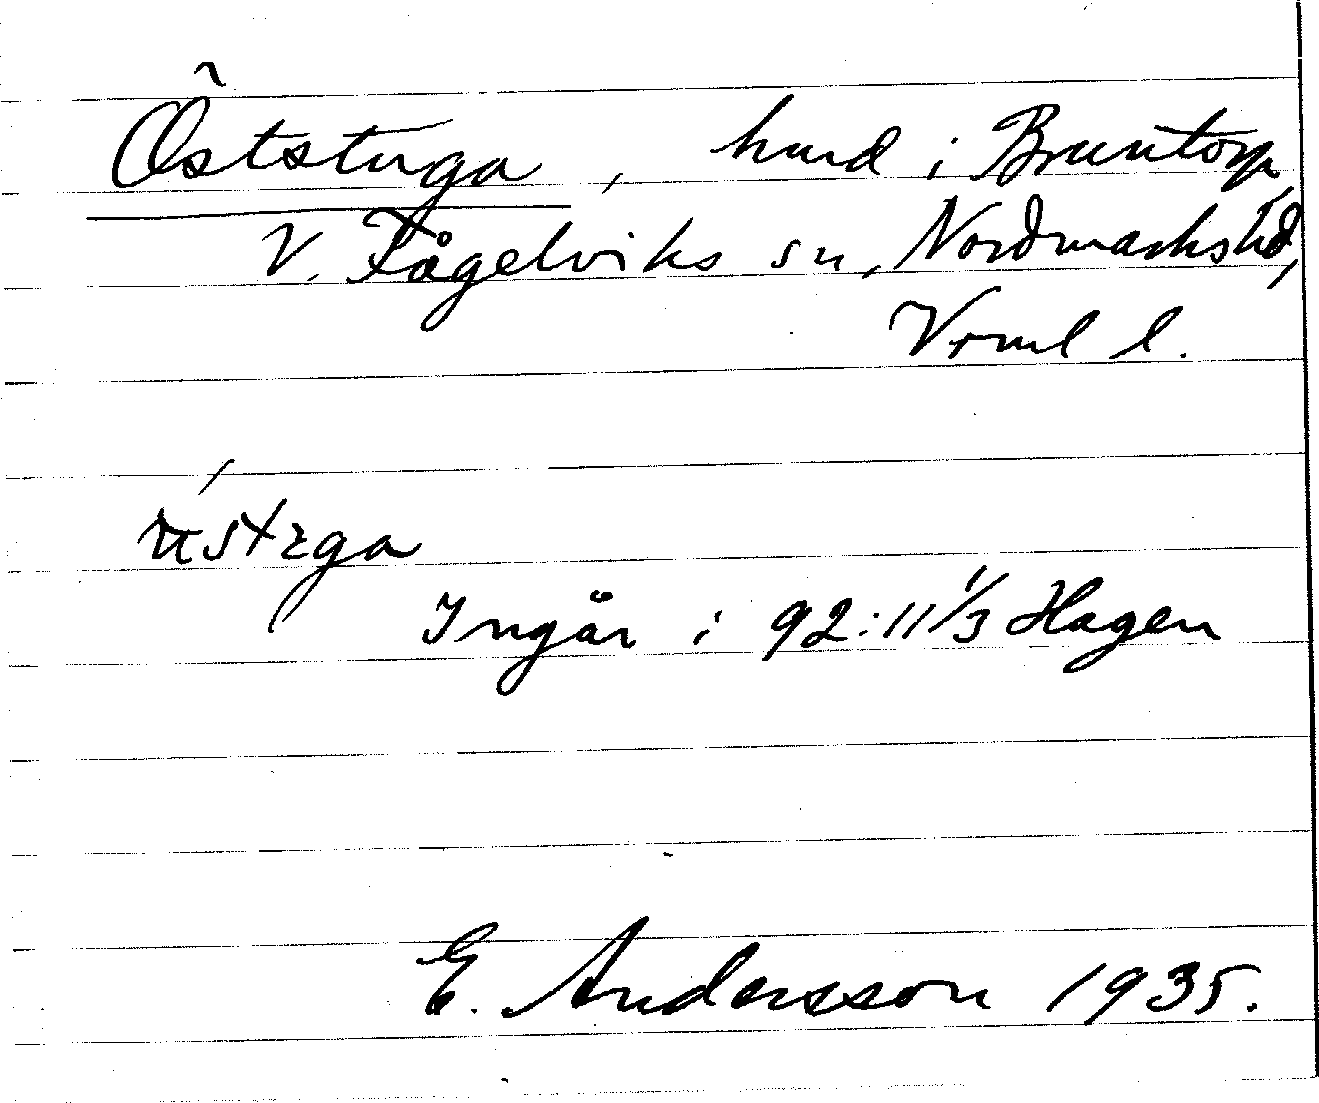 Öststuga, hmd i Bruntorp,
V. Fågelviks sn, Nordmarks hd,
Vrml l.
Ingår i 92:11 1/3 Hagen
E. Andersson 1935.